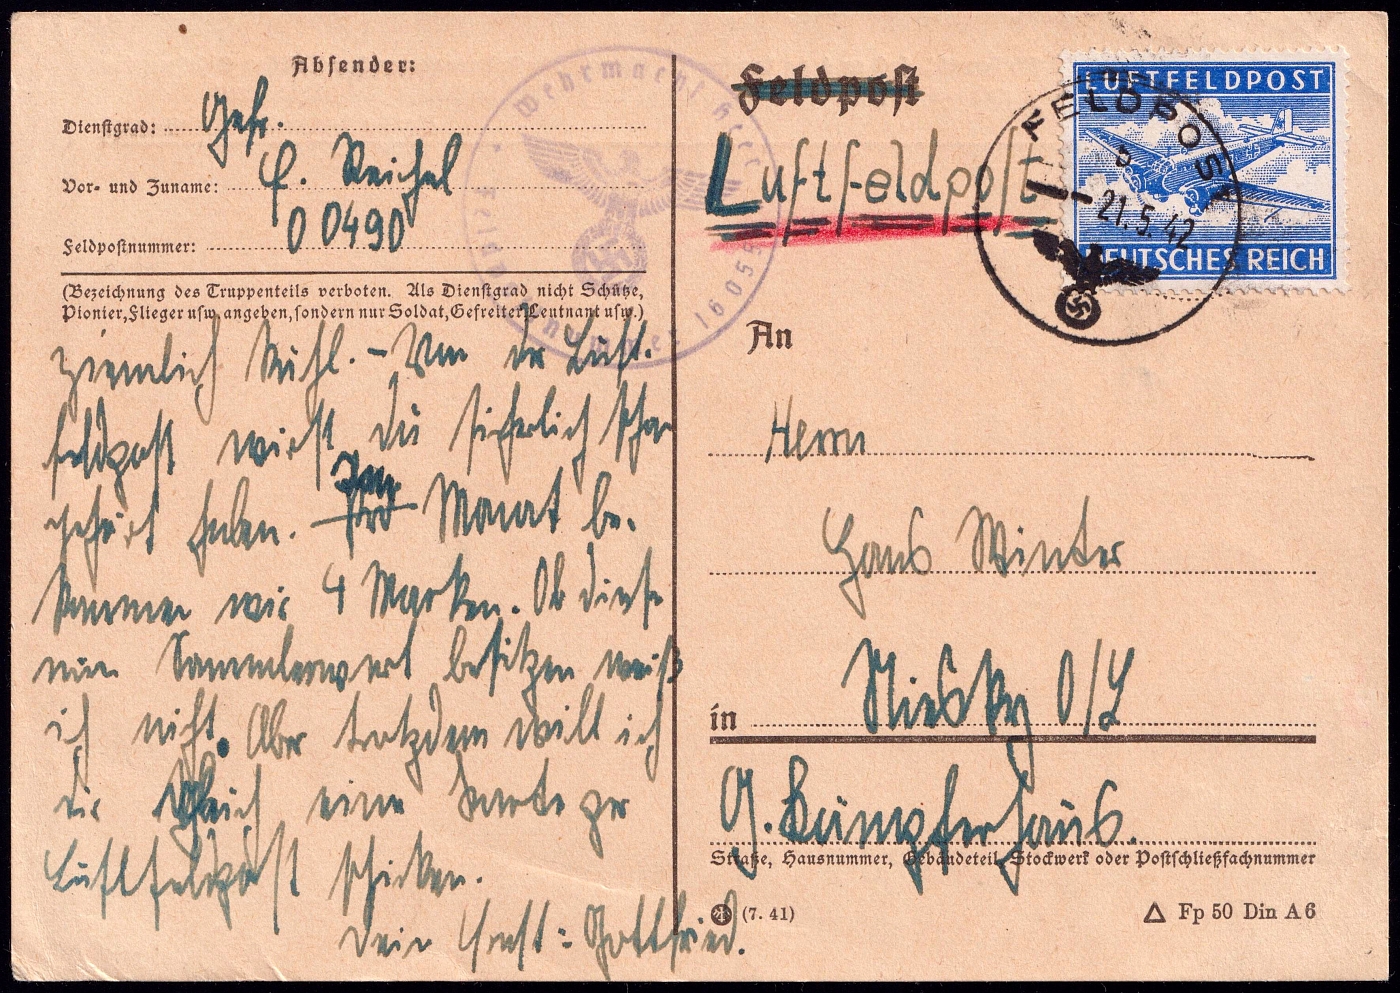 Absender:
Dienstgrad: Gefr.
Vor- und Zuname: E. Reichel
Feldpostnummer: 00490
(Bezeichnung des Truppenteils verboten. Als Dienstgrad nicht Schütze,
Pionier, Flieger usw. angeben, sondern nur Soldat, Gefreiter, Leutnant usw.)
ziemlich kühl. – Von der Luft-
feldpost wirst du sicherlich schon
gehört haben. Im Monat be-
kommen wir 4 Marken. Ob diese
nun Sammlerwert besitzen weiß
ich nicht. Aber trotzdem will ich
dir gleich eine Karte per
Luftfeldpost schicken.
Dein Ernst-Gottfried.
Wehrmacht Heer
16055
Feldpost
Luftfeldpost
LUFTFELDPOST
DEUTSCHES REICH
FELDPOST
b
21.5.42
An
Herrn
Hans Winter
in Niesky O/L
G. Kämpferhaus.
Straße, Hausnummer, Gebäudeteil, Stockwerk oder Postschließfachnummer
(7. 41)
Fp 50 Din A6